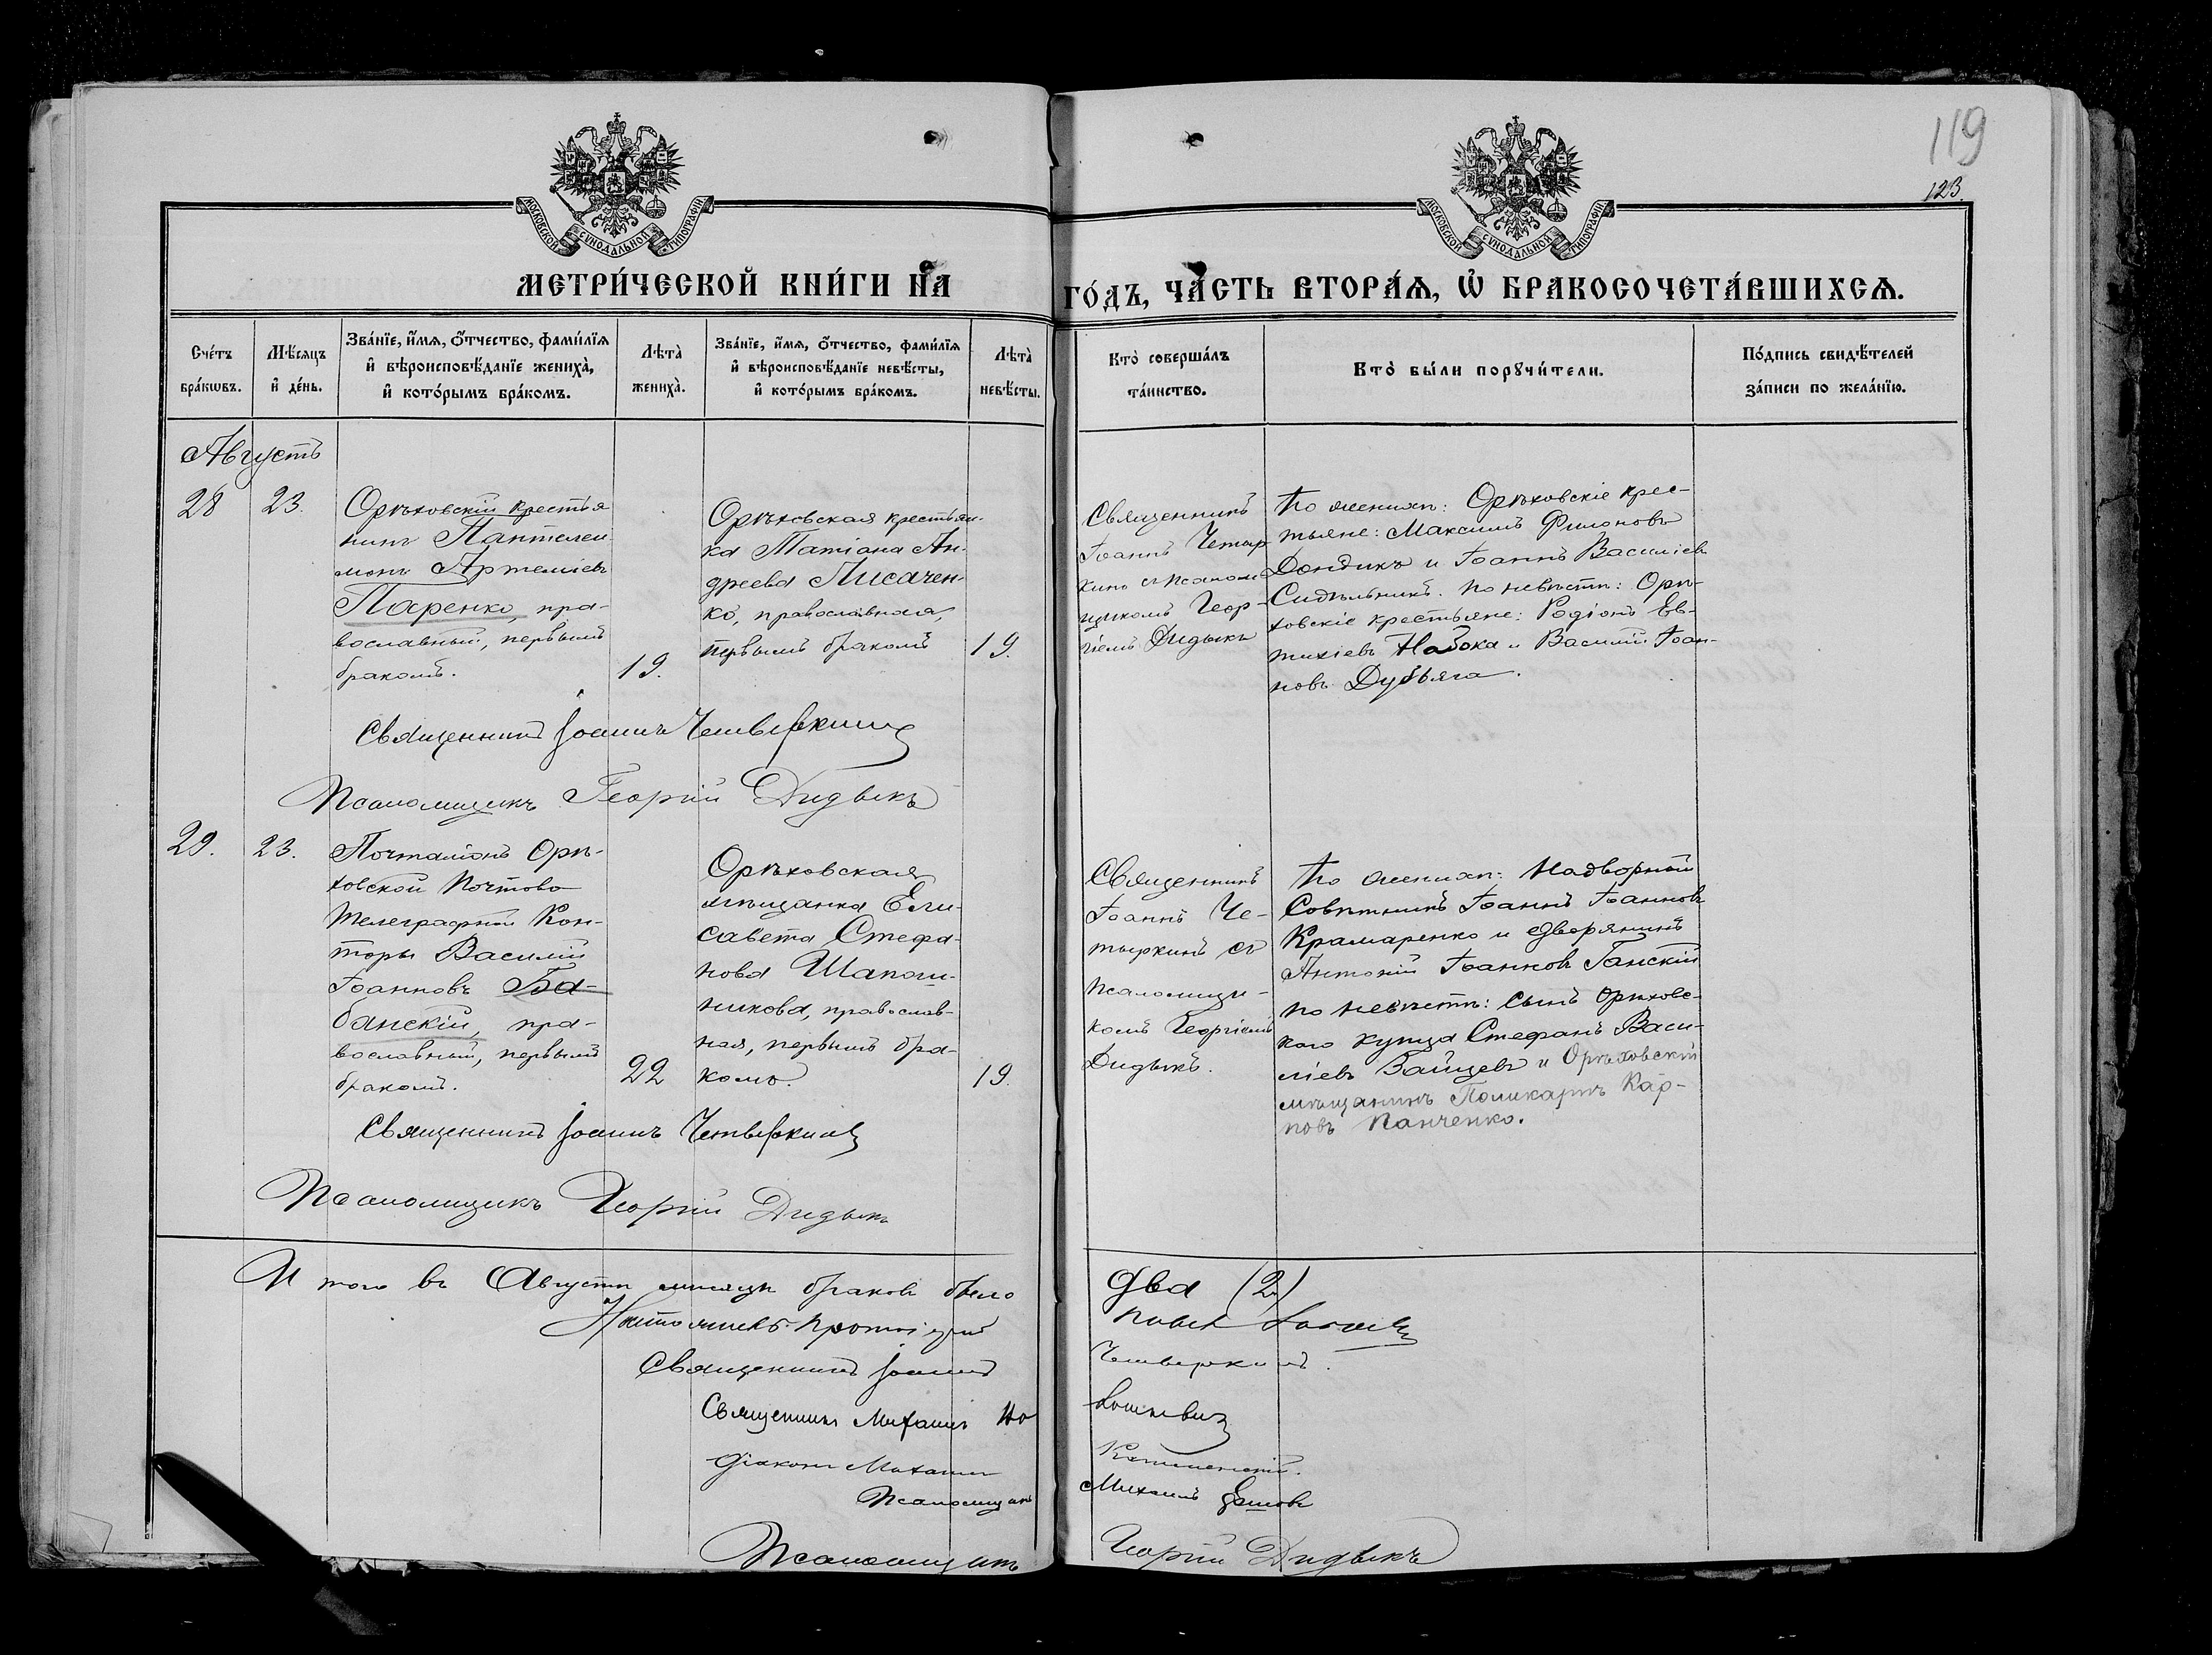 119
123.
МОСКОВСКОЙ СѴНОДАЛЬНОЙ ТИПОГРАФІИ
МОСКОВСКОЙ СѴНОДАЛЬНОЙ ТИПОГРАФІИ
МЕТРИ́ЧЕСКОЙ КНИ́ГИ НА̀
ГО́ДЪ, ЧА́СТЬ ВТОРА́Ѧ, Ѽ БРАКОСОЧЕТА́ВШИХСѦ.
Сче́тъ
бра́кѡвъ.
Мѣ́сѧцъ
и҆ де́нь.
Зва́нїе, и҆́мѧ, ѻ҆́тчество, фами́лїѧ
и҆ вѣроисповѣ́данїе жениха̀,
и҆ кото́рымъ бра́комъ.
Лѣта̀
жениха̀.
Зва́нїе, и҆́мѧ, ѻ҆́тчество, фами́лїѧ
и҆ вѣроисповѣ́данїе невѣ́сты,
и҆ кото́рымъ бра́комъ.
Лѣта̀
невѣ́сты.
Кто̀ соверша́лъ
та́инство.
Кто̀ бы́ли порꙋчи́тели.
По́дпись свидѣ́телей
за́писи по жела́нїю.
Августъ
28
23.
Орѣховскій крестья
нинъ Пантелеи
монъ Артеміевъ
Паренко, пра-
вославный, первымъ
бракомъ.
19.
Орѣховская крестьян-
ка Татіана Ан-
дреева Лисачен-
ко, православная,
первымъ бракомъ
19.
Священникъ
Іоаннъ Четыр
кинъ съ псалом
щикомъ Геор-
гіемъ Дидыкъ
По женихѣ: Орѣховскіе крес-
тьяне: Максимъ Филоновъ
Дондикъ и Іоаннъ Василіевъ
Сидѣльникъ. По невѣстѣ: Орѣ-
ховскіе крестьяне: Родіонъ Ев-
тихіевъ Набока и Василій Іоан-
новъ Дубвяга.
Священникъ Іоаннъ Четверкинъ
Псаломщикъ Георгій Дидыкъ
29.
23.
Почталіонъ Орѣ-
ховской Почтово
Телеграфной Кон-
торы Василій
Іоанновъ Ба-
банскій, пра-
вославный, первымъ
бракомъ.
22
Орѣховская
мѣщанка Ели-
савета Стефа-
нова Шапош-
никова, православ-
ная, первымъ бра-
комъ.
19.
Священникъ
Іоаннъ Че-
тыркинъ съ
псаломщи-
комъ Георгіемъ
Дидыкъ.
По женихѣ: Надворный
Совѣтникъ Іоаннъ Іоанновъ
Крамаренко и дворянинъ
Антоній Іоанновъ Ганскій
по невѣстѣ: сынъ Орѣховс-
каго купца Стефанъ Васи-
ліевъ Зайцевъ и Орѣховскій
мѣщанинъ Поликарпъ Кар-
повъ Панченко.
Священникъ Іоаннъ Четверкинъ
Псаломщикъ Георгій Дидыкъ
И того въ Августѣ мѣсяцѣ браковъ было
два (2)
Протоіерей
Павелъ
Священникъ Іоаннъ
Четверкинъ.
Священникъ Михаилъ
Діаконъ
Псаломщикъ
Михаилъ
Псаломщикъ
Георгій Дидыкъ